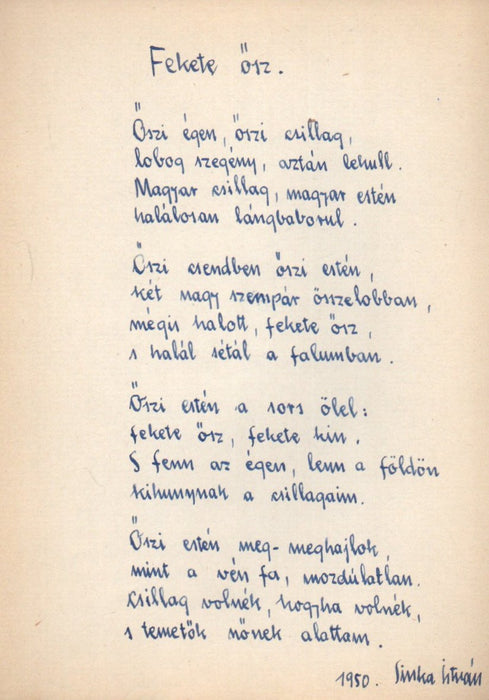 Fekete ősz.
Őszi égen, őszi csillag,
lobog szegény, aztán lehull.
Magyar csillag, magyar estén
halálosan lángbaborul.
Őszi csendben őszi estén,
két nagy szempár összelobban,
mégis halott, fekete ősz,
s halál sétál a falumban.
Őszi estén a sors ölel:
fekete ősz, fekete kin.
S fenn az égen, lenn a földön
kihunynak a csillagaim.
Őszi estén meg-meghajlok,
mint a vén fa, mozdúlatlan.
Csillag volnék, hogyha volnék,
s temetők nőnek alattam.
1950. Sinka István